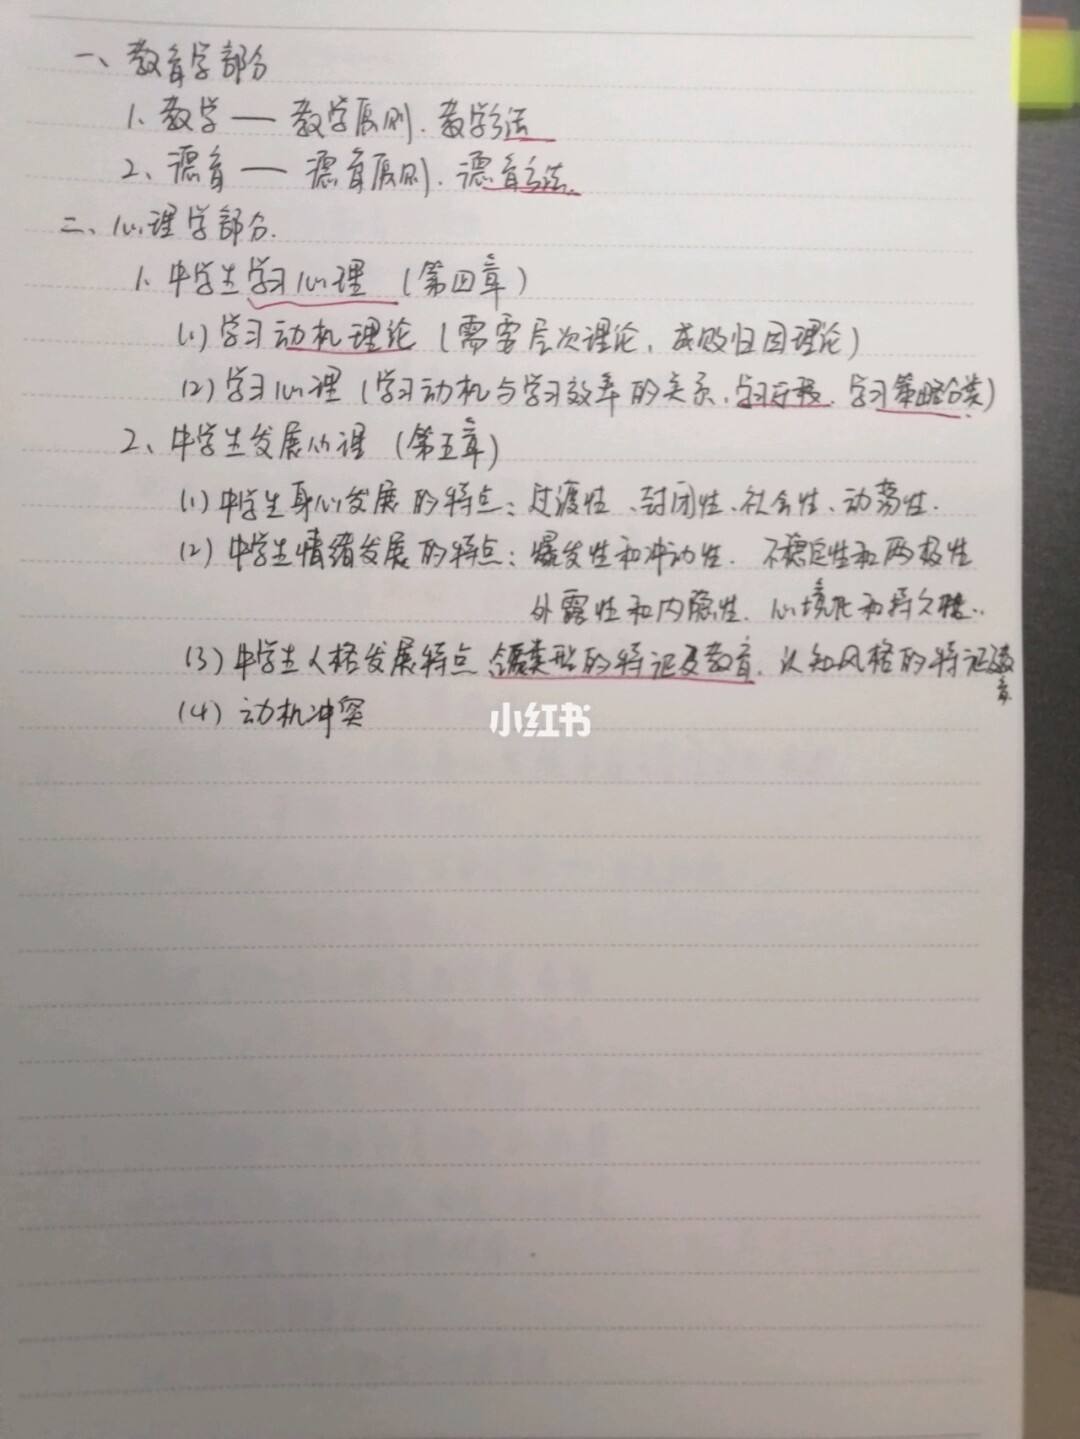 一、教育学部分
1、教学 — 教学原则. 教学方法
2、德育 — 德育原则. 德育方法.
二、心理学部分.
1、中学生学习心理 (第四章)
(1) 学习动机理论 (需要层次理论, 成败归因理论)
(2) 学习心理 (学习动机与学习效率的关系. 学习迁移. 学习策略分类)
2、中学生发展心理 (第五章)
(1) 中学生身心发展的特点: 过渡性、封闭性、社会性、动荡性.
(2) 中学生情绪发展的特点: 爆发性和冲动性. 不稳定性和两极性
外露性和内隐性. 心境化和持久性..
(3) 中学生人格发展特点 类型的特征及教育. 认知风格的特征及教育
(4) 动机冲突
小红书